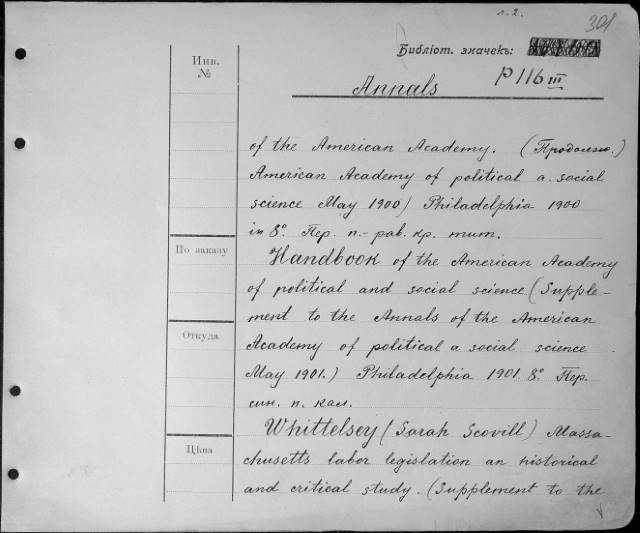 л. 2.
301
Библіот. значекъ:
P 116 III
Annals
Инв.
№
По заказу
Откуда
Цѣна
of the American Academy. (Продолж.)
American Academy of political a. social
science May 1900) Philadelphia 1900
in 8°. Пер. п.-
Handbook of the American Academy
of political and social science (Supple-
ment to the Annals of the American
Academy of political a social science
May 1901.) Philadelphia 1901. 8°. Пер.
син. п. кал.
Whittelsey (Sarah Scovill) Massa-
chusetts labor legislation an historical
and critical study. (Supplement to the